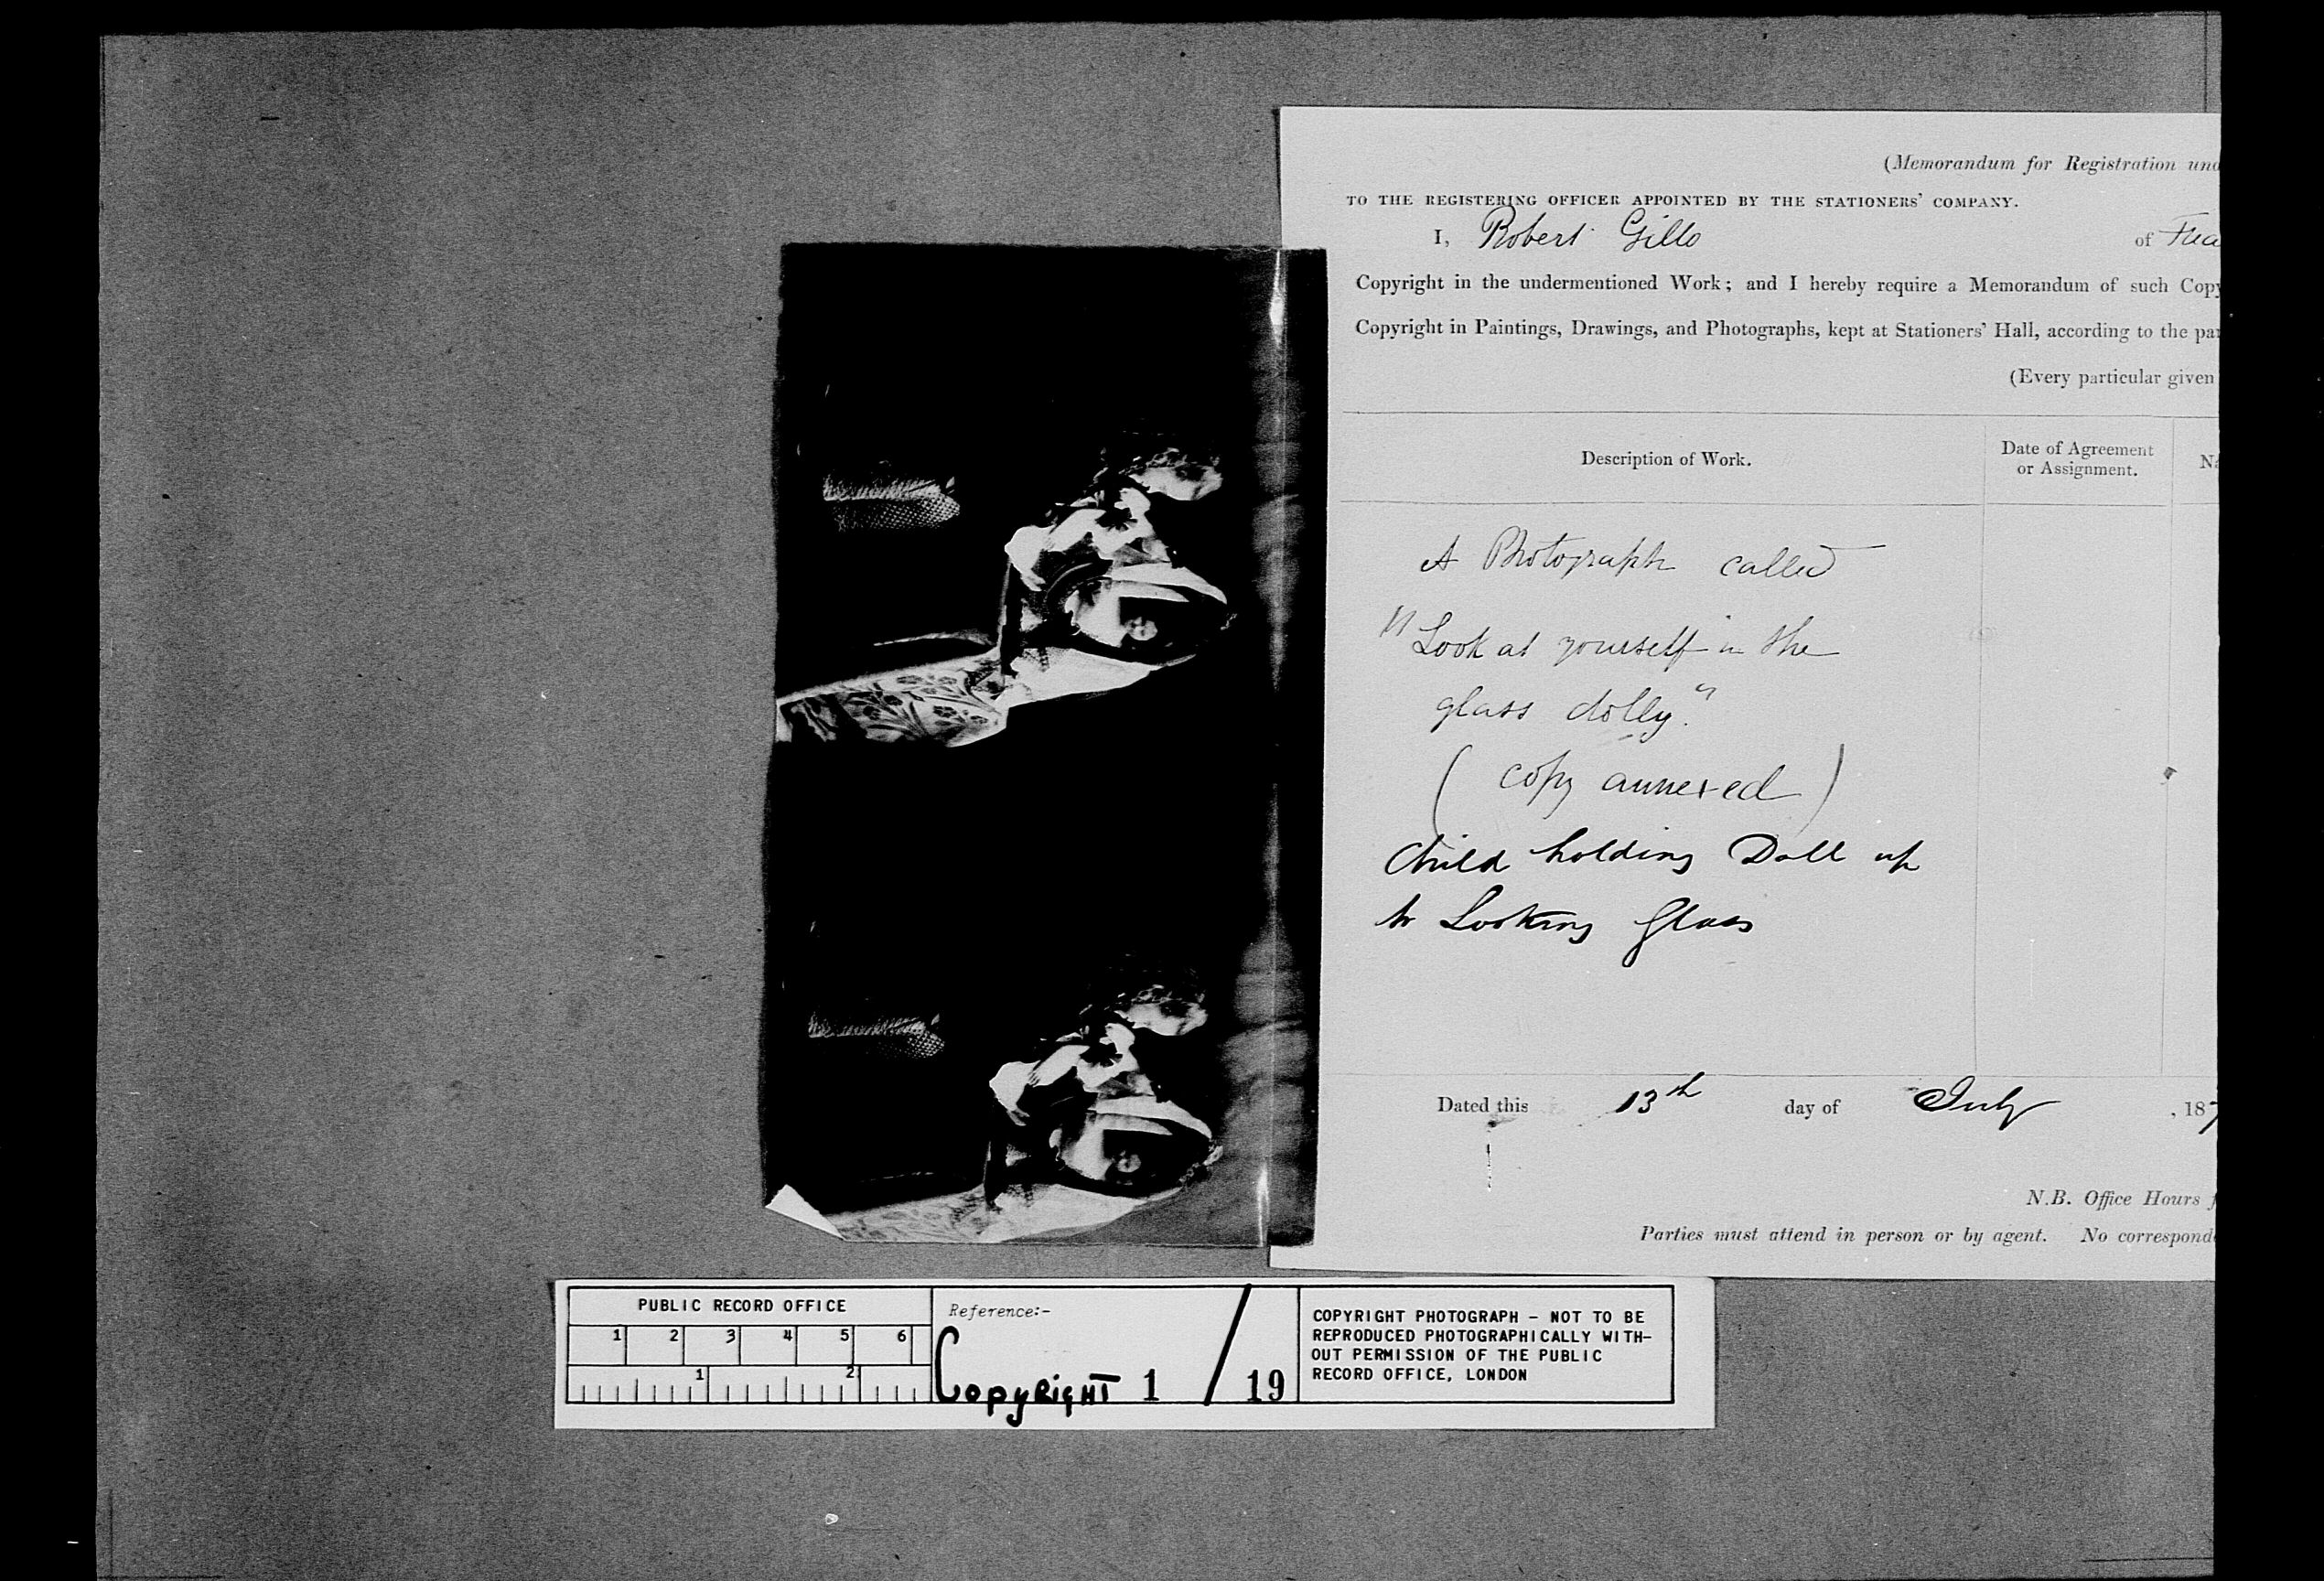 (Memorandum for Registration und
TO THE REGISTERING OFFICER APPOINTED BY THE STATIONERS' COMPANY.
I, Robert Gillo of
Copyright in the undermentioned Work; and I hereby require a Memorandum of such Copy
Copyright in Paintings, Drawings, and Photographs, kept at Stationers' Hall, according to the par
(Every particular given
Description of Work.
Date of Agreement
or Assignment.
Na
A Photograph called
"Look at yourself in the
glass dolly."
(copy annexed)
Child holding Doll up
to Looking Glass
Dated this 13th day of July, 187
N.B. Office Hours f
Parties must attend in person or by agent. No corresponde
PUBLIC RECORD OFFICE
1 2 3 4 5 6
1 2
Reference:-
COPYRIGHT 1 / 19
COPYRIGHT PHOTOGRAPH - NOT TO BE
REPRODUCED PHOTOGRAPHICALLY WITH-
OUT PERMISSION OF THE PUBLIC
RECORD OFFICE, LONDON